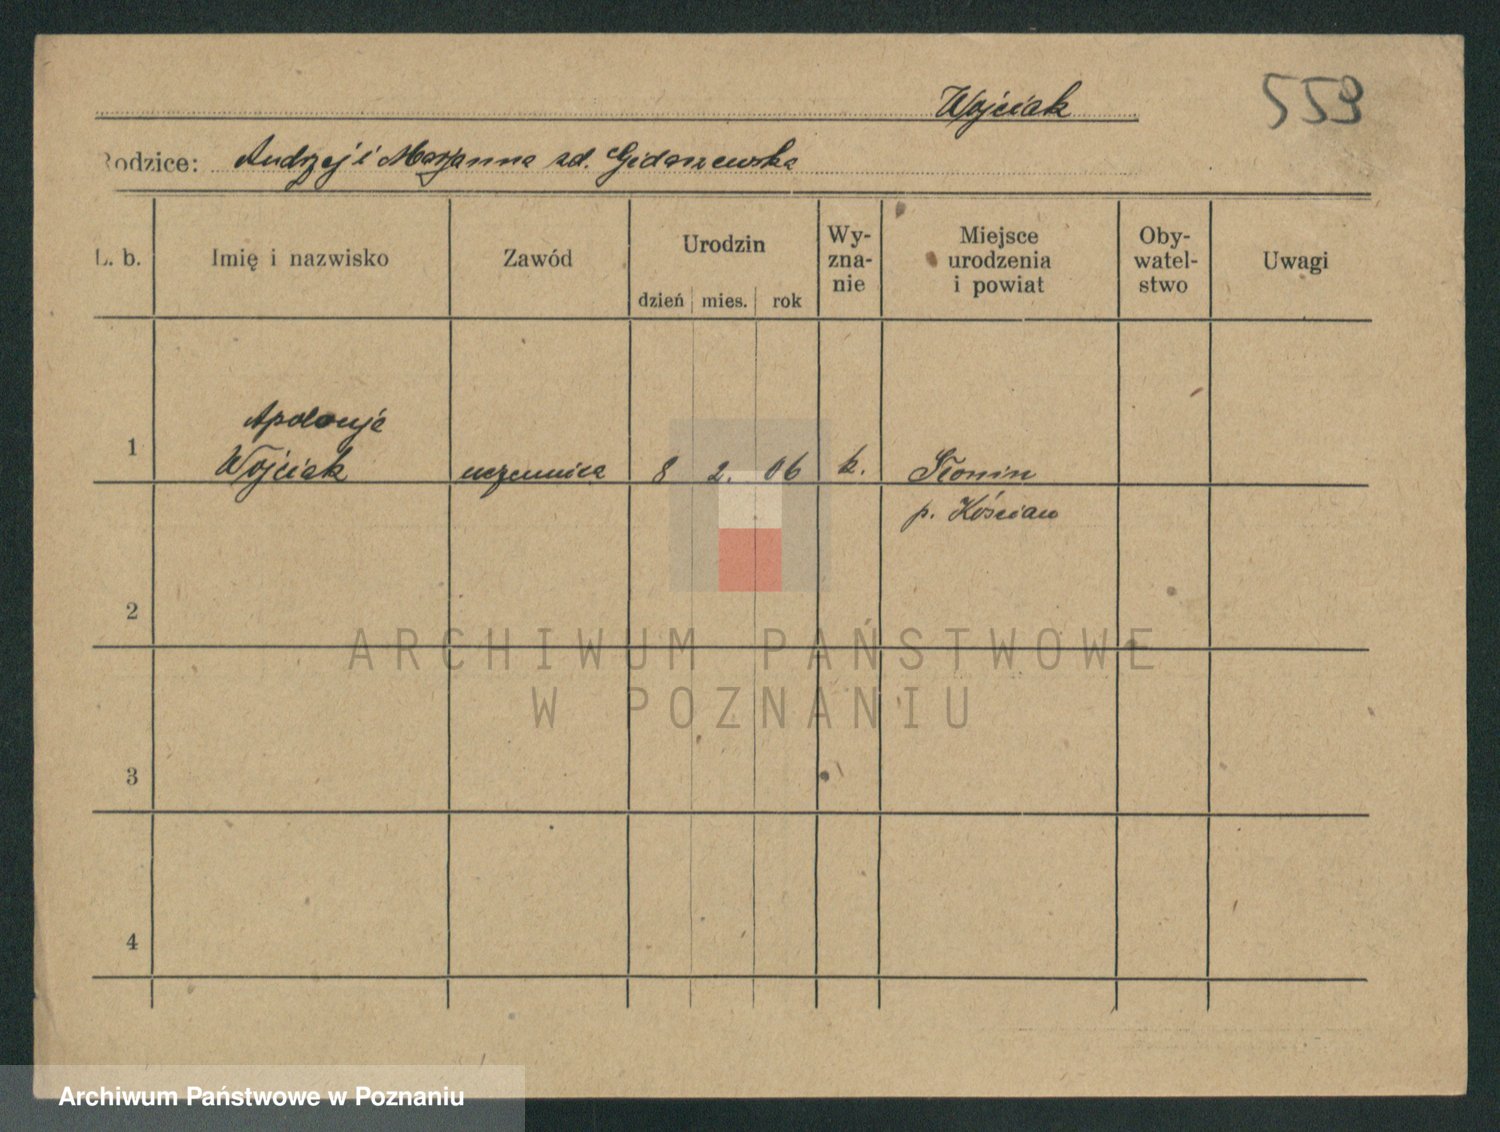 Wojciak
553
Rodzice: Andrzej i Marjanna zd. Gidaszewska
L. b.
Imię i nazwisko
Zawód
Urodzin
dzień mies. rok
Wy-
zna-
nie
Miejsce
urodzenia
i powiat
Oby-
watel-
stwo
Uwagi
1
Apolonja
Wojciak
uczennica
8 2. 06
k.
Słonin
p. Kościan
2
3
4
ARCHIWUM PAŃSTWOWE
W POZNANIU
Archiwum Państwowe w Poznaniu